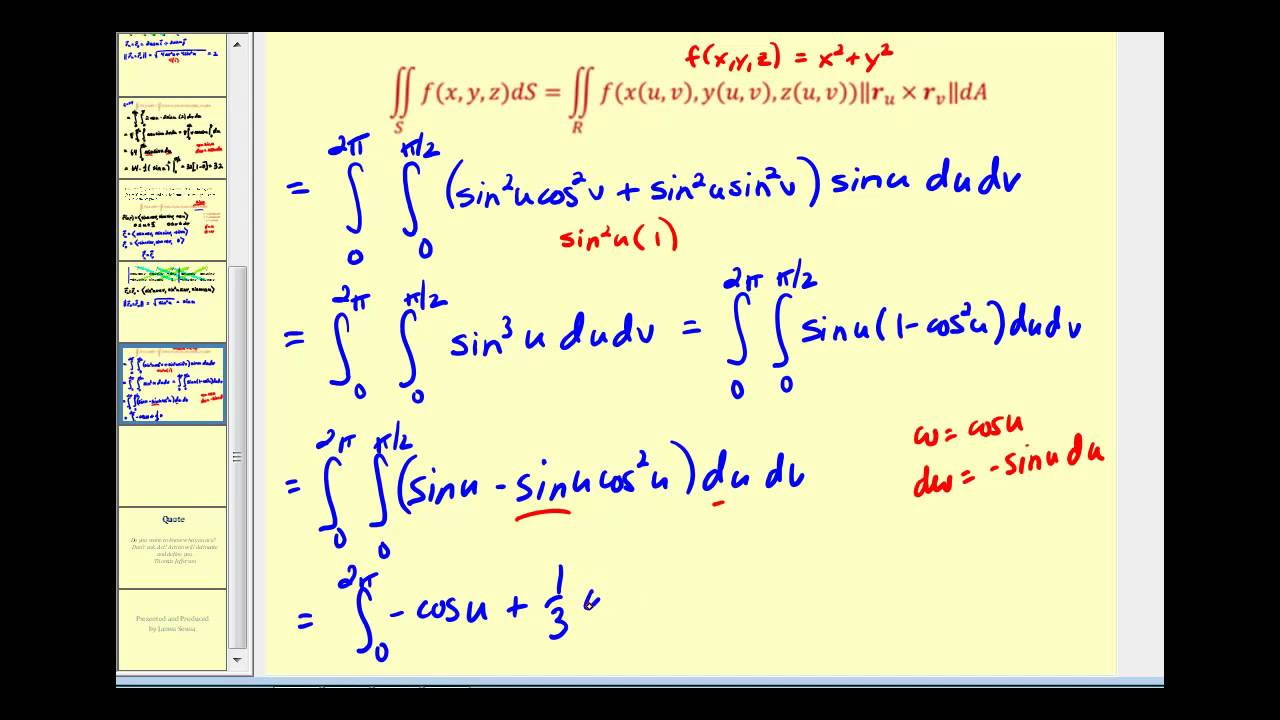 f(x,y,z) = x² + y²
∬_S f(x, y, z)dS = ∬_R f(x(u, v), y(u, v), z(u, v))‖r_u × r_v‖dA
= ∫_0^{2π} ∫_0^{π/2} (sin²u cos²v + sin²u sin²v) sin u du dv
sin²u(1)
= ∫_0^{2π} ∫_0^{π/2} sin³u du dv = ∫_0^{2π} ∫_0^{π/2} sin u(1 - cos²u) du dv
w = cos u
dw = -sin u du
= ∫_0^{2π} ∫_0^{π/2} (sin u - sin u cos²u) du dv
= ∫_0^{2π} - cos u + 1/3
Quote
Do you want to know who you are?
Don't ask. Act! Action will delineate
and define you.
Thomas Jefferson
Presented and Produced
by James Sousa